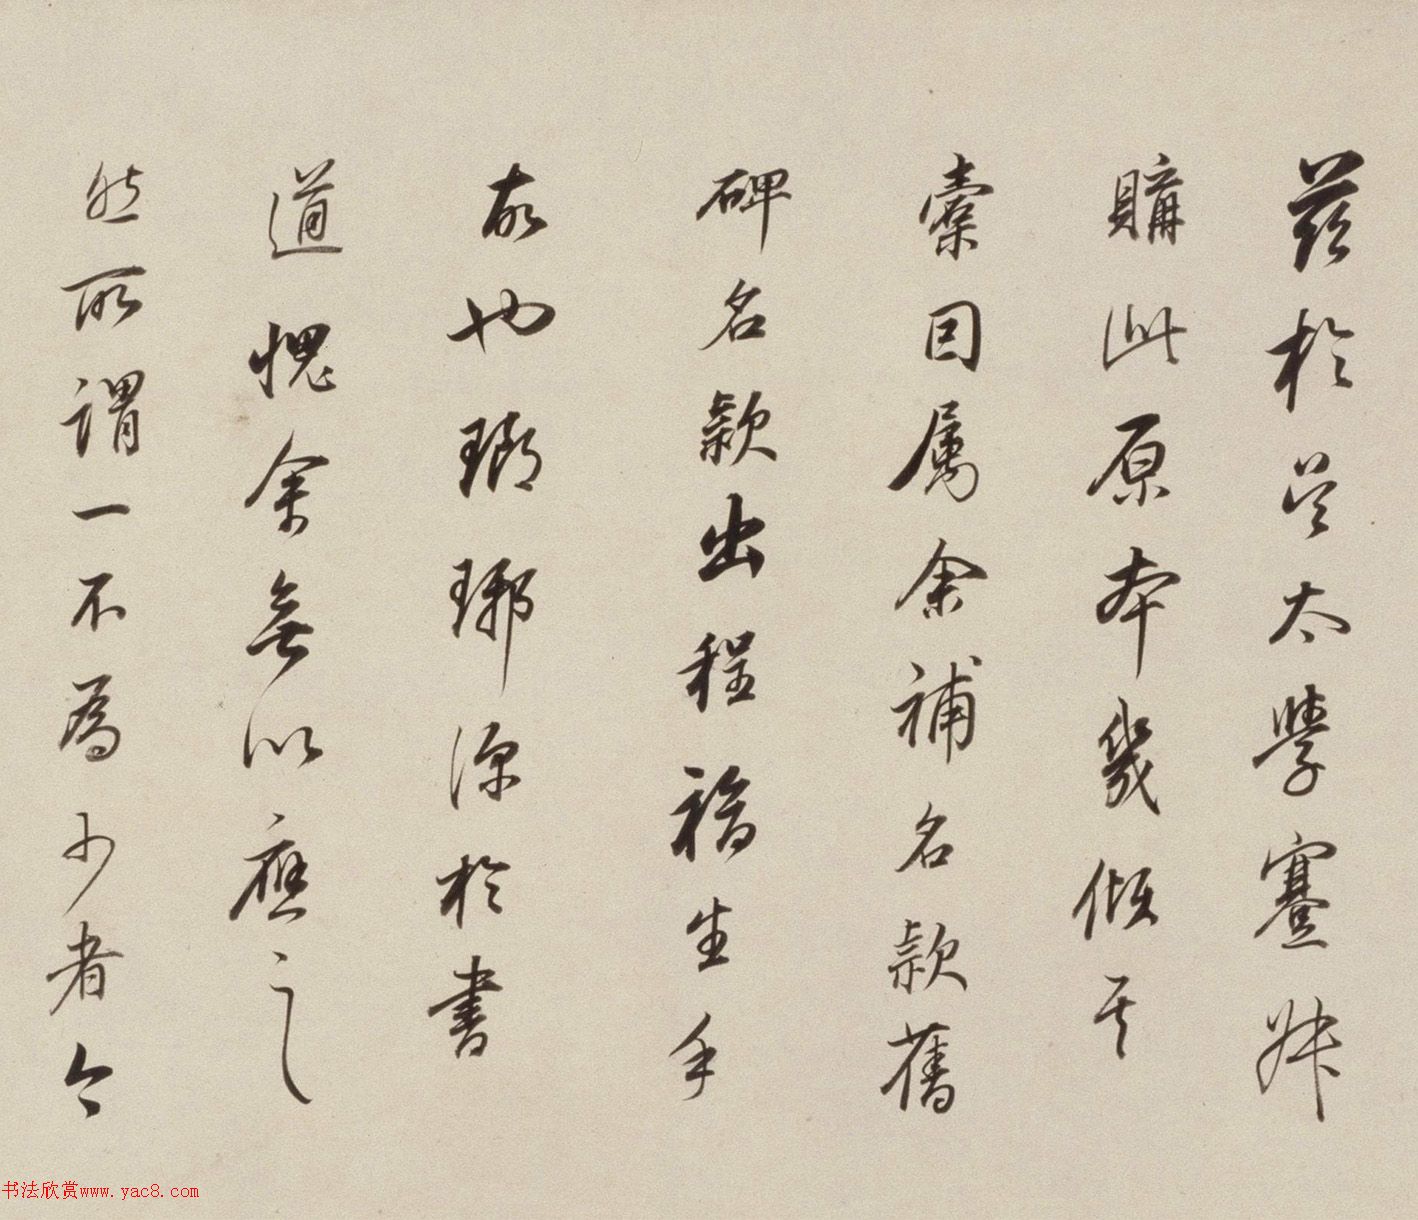 茲於吳太學蹇叔
購此原本幾傾其
橐因属余補名款舊
碑名款出程福生手
故也瑯琊深於書
道愧余無以應之
然所謂一不為少者今
书法欣赏www.yac8.com